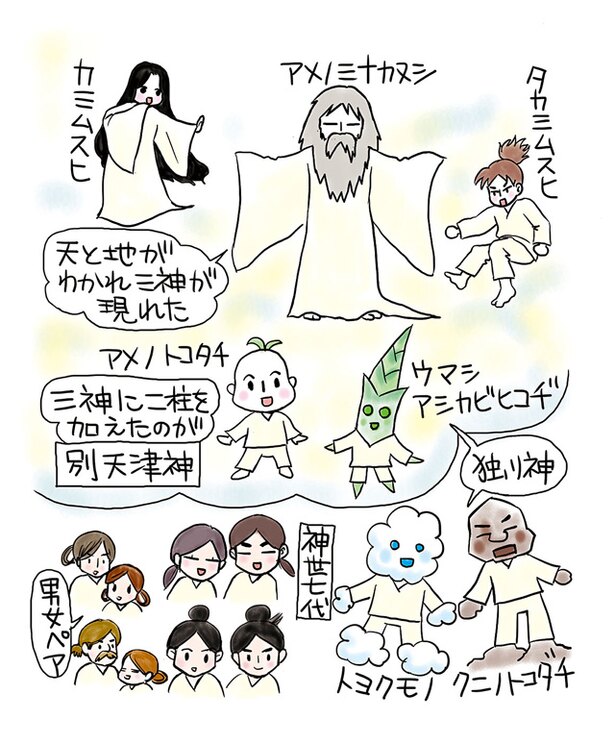 カミムスヒ
アメノミナカヌシ
タカミムスヒ
天と地が
わかれ三神が
現れた
アメノトコタチ
ウマシ
アシカビヒコヂ
三神に二柱を
加えたのが
別天津神
独り神
神世七代
男女ペア
トヨクモノ
クニノトコダチ